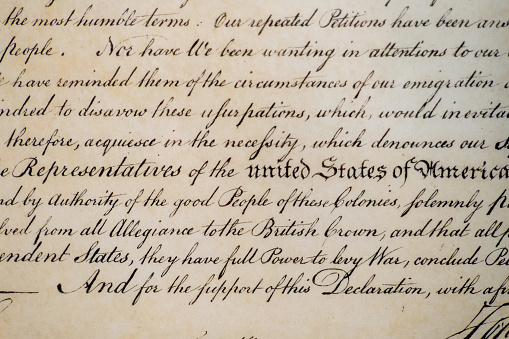 the most humble terms: Our repeated Petitions have been ans
people. Nor have We been wanting in attentions to our
have reminded them of the circumstances of our emigration
indred to disavow these usurpations, which, would inevita
therefore, acquiesce in the necessity, which denounces our
e Representatives of the united States of America
nd by Authority of the good People of these Colonies, solemnly p
lved from all Allegiance to the British Crown, and that all p
endent States, they have full Power to levy War, conclude Pe
And for the support of this Declaration, with a fir